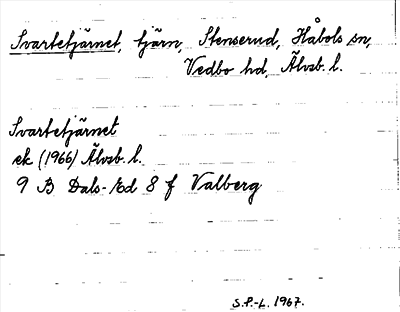 Svartetjärnet, tjärn, Stenserud, Håbols sn,
Vedbo hd, Älvsb. l.
Svartetjärnet
ek (1966) Älvsb. l.
9 B Dals-Ed 8 f Valberg
S.P.-L. 1967.